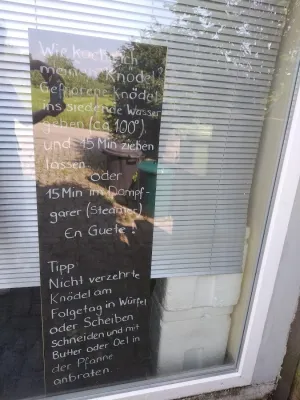 Wie koche ich
meine Knödel?
Gefrorene Knödel
ins siedende Wasser
geben (ca. 100°)
und 15 Min ziehen
lassen.
oder
15 Min im Dampf-
garer (Steamer)
En Guete!
Tipp
Nicht verzehrte
Knödel am
Folgetag in Würfel
oder Scheiben
schneiden und mit
Butter oder Oel in
der Pfanne
anbraten.